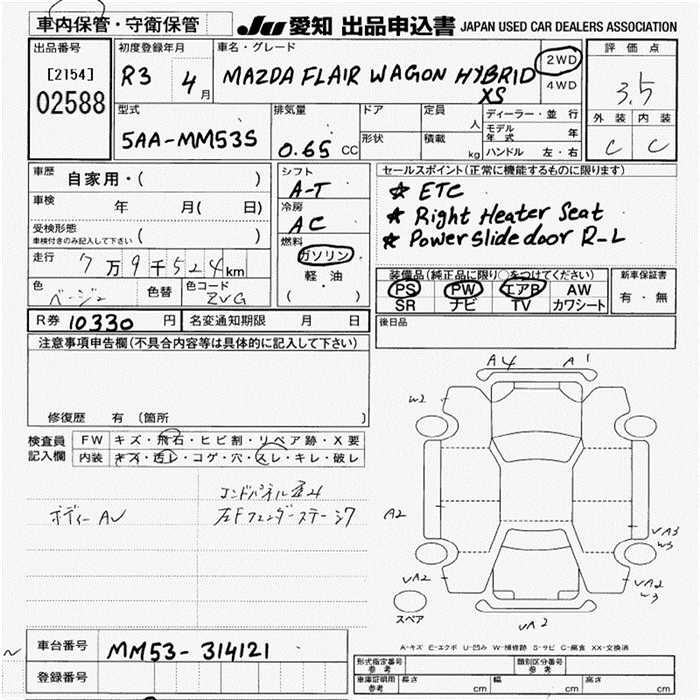 車内保管・守衛保管
JU 愛知 出品申込書 JAPAN USED CAR DEALERS ASSOCIATION
出品番号
[2154]
02588
初度登録年月
R3 4月
車名・グレード
MAZDA FLAIR WAGON HYBRID
XS
2WD
4WD
評価点
3.5
外装 内装
C C
型式
5AA-MM53S
排気量
0.65 CC
ドア
形状
定員 人
積載 kg
ディーラー・並行
モデル年式 年
ハンドル 左・右
車歴 自家用・( )
車検 年 月( 日)
受検形態
車検付きのみ記入して下さい ( )
走行 7万9千524km
色 ベージュ 色替 色コード ZVG
シフト
A-T
冷房
AC
燃料
ガソリン
軽・油
( )
セールスポイント(正常に機能するものに限ります)
☆ ETC
☆ Right Heater Seat
☆ Power slide door R-L
装備品(純正品に限り○をつけてください)
PS PW エアB AW
SR ナビ TV カワシート
新車保証書
有・無
R券 10330 円 名変通知期限 月 日
後日品
注意事項申告欄(不具合内容等は具体的に記入して下さい)
修復歴 有 (箇所 )
検査員記入欄
FW キズ・飛石・ヒビ割・リペア跡・X要
内装 キズ・汚レ・コゲ・穴・スレ・キレ・破レ
ボディーAU
左Fフェンダーステージ
A4 A1
W2
A2
A3
W3
A2
A2
W3
A2
スペア
A-キズ E-エクボ U-凹み W-補修跡 S-サビ C-腐食 XX-交換済
車台番号 MM53-314121
登録番号
形式指定番号 参考
類別区分番号 参考
車庫証明用 参考
長さ cm 幅 cm 高さ cm